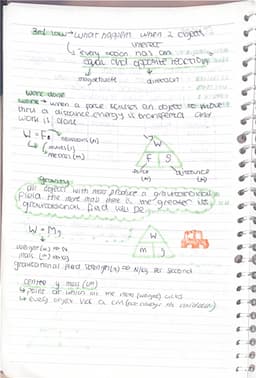 3rd law → what happens when 2 objects
interact
↳ every action has an
equal and opposite reaction
magnitude direction
work done
work → when a force causes an object to move
thru a distance energy is transferred and
work is done
W = Fs
newtons (n)
metres (m)
W
F S
force
(n)
distance
(m)
gravity
all objects with mass produce a gravitational
field the more mass there is the greater its
gravitational field will be
W = Mg
W
m g
weight (n)
mass
gravitational field strength N/kg
centre of mass
↳ point at which all the mass (weight) acts
↳ every object has a CM